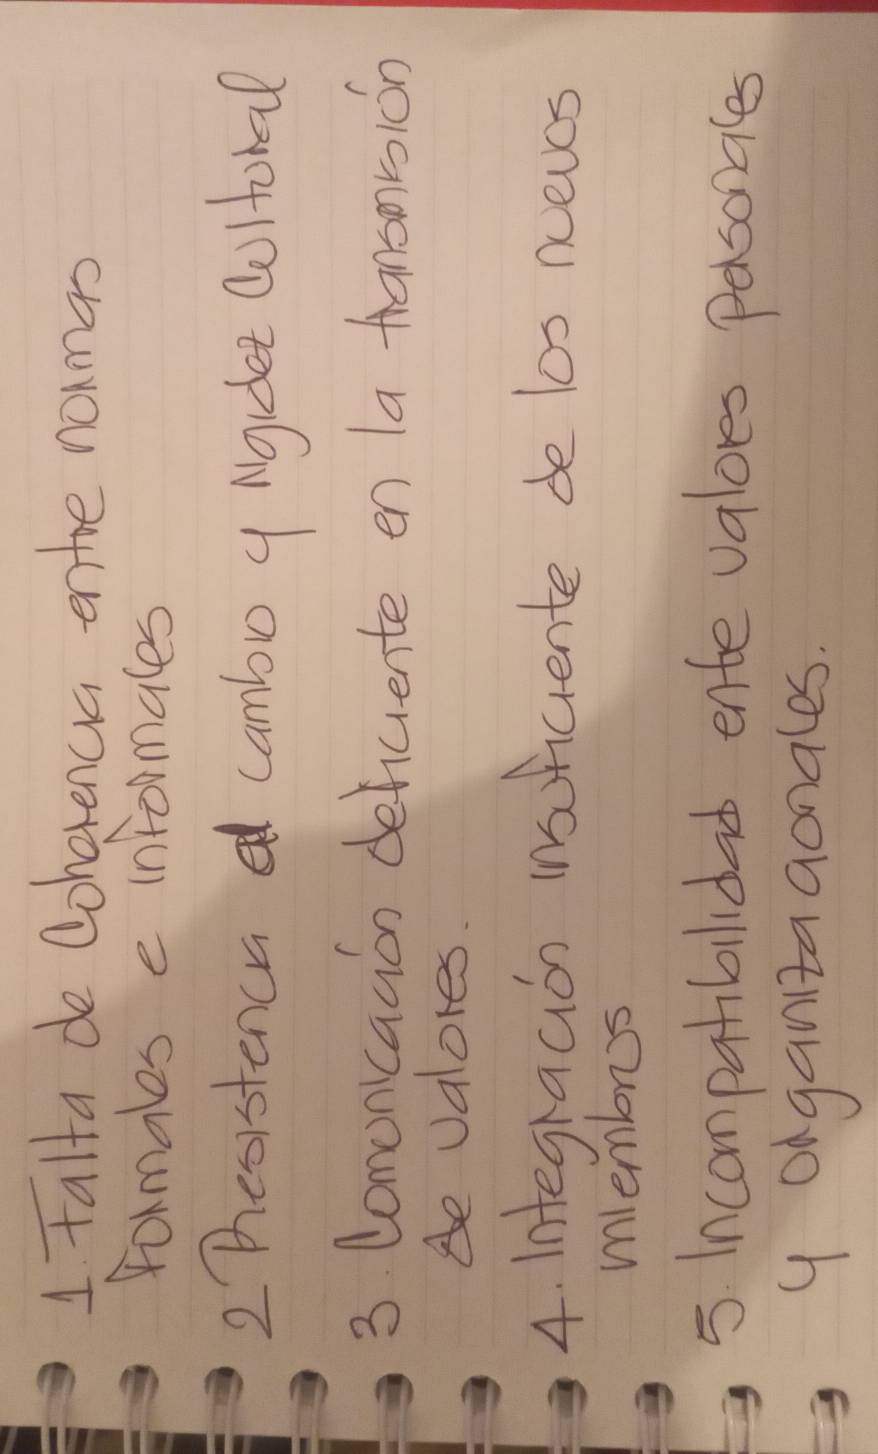 1. Falta de Coherencia entre normas
Formales e informales
2 Resistencia al cambio y rigidez Cultural
3. Comunicación deficiente en la transmisión
de valores.
4. Integración insuficiente de los nuevos
miembros
5. Incompatibilidad entre valores personales
y organizacionales.